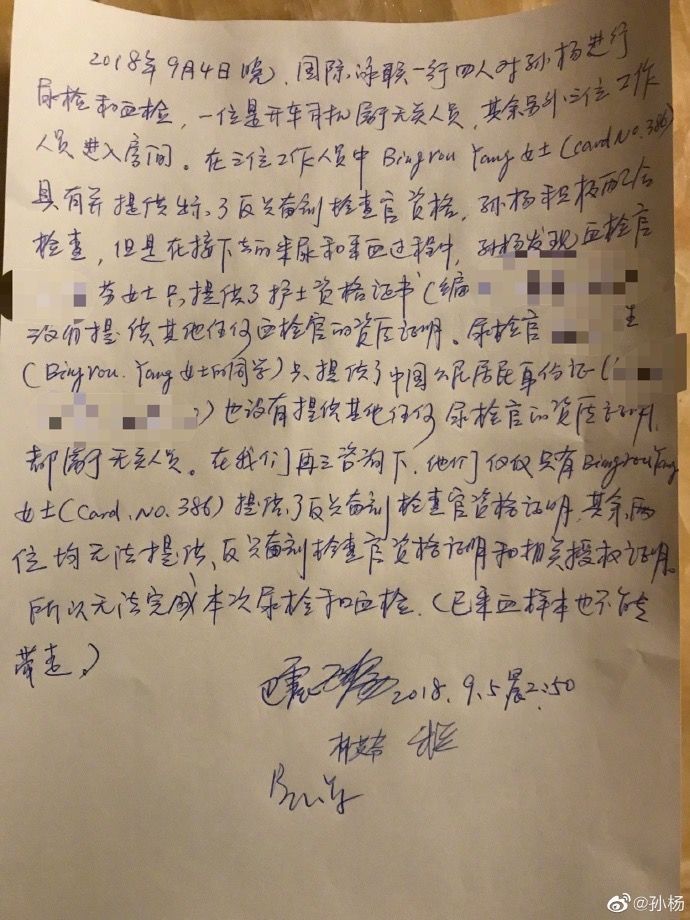 2018年9月4日晚，国际泳联一行四人对孙杨进行
尿检和血检，一位是开车司机属于无关人员，其余另外三位工作
人员进入房间。在三位工作人员中Bingrou Yang女士(card No.386)
具有并提供出示了反兴奋剂检查官资格，孙杨积极配合
检查，但是在接下去的采尿和采血过程中，孙杨发现血检官
女士只提供了护士资格证书(编
没有提供其他任何血检官的资质证明。尿检官
(Bingrou. Yang女士的同学)只提供了中国公民居民身份证(
)也没有提供其他任何尿检官的资质证明，
都属于无关人员。在我们再三咨询下，他们仅仅只有Bingrou Yang
女士(Card.No.386)提供了反兴奋剂检查官资格证明，其余两
位均无法提供反兴奋剂检查官资格证明和相关授权证明。
所以无法完成本次尿检和血检.(已采血样本也不能
带走。)
2018.9.5晨2:50
@孙杨